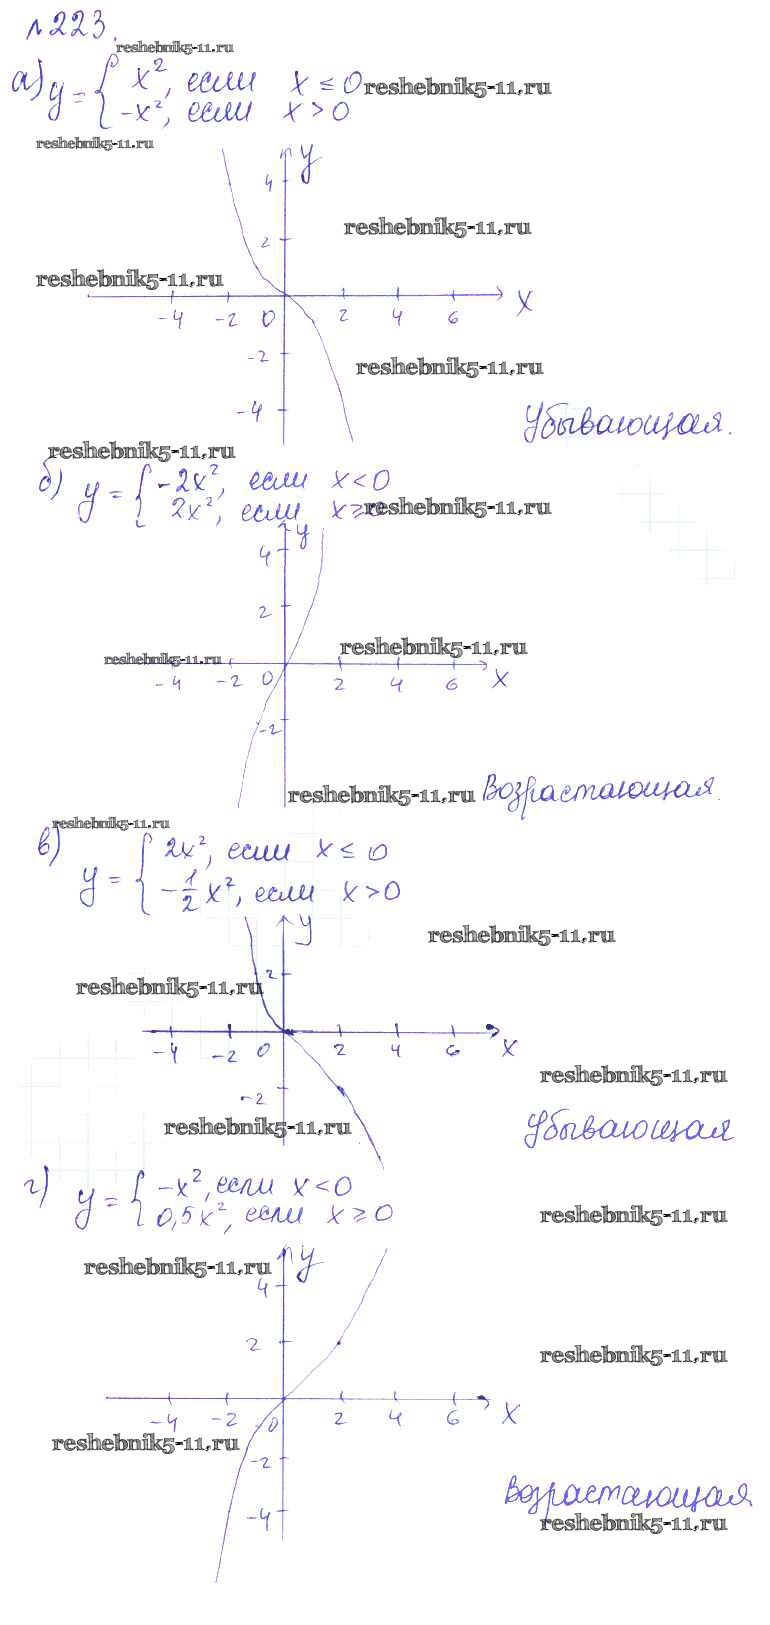 №223.
reshebnik5-11.ru
а) y = { x², если x ≤ 0 reshebnik5-11.ru
-x², если x > 0
reshebnik5-11.ru
y
4
reshebnik5-11.ru
2
reshebnik5-11.ru
-4 -2 0 2 4 6 x
-2
reshebnik5-11.ru
-4
Убывающая.
reshebnik5-11.ru
б) y = { -2x², если x < 0
2x², если x ≥ 0 reshebnik5-11.ru
y
4
2
reshebnik5-11.ru
reshebnik5-11.ru
-4 -2 0 2 4 6 x
-2
reshebnik5-11.ru Возрастающая.
reshebnik5-11.ru
в) y = { 2x², если x ≤ 0
-1/2 x², если x > 0
y
reshebnik5-11.ru
2
reshebnik5-11.ru
-4 -2 0 2 4 6 x
reshebnik5-11.ru
-2
reshebnik5-11.ru Убывающая
г) y = { -x², если x < 0
0,5x², если x ≥ 0 reshebnik5-11.ru
y
reshebnik5-11.ru
4
2
reshebnik5-11.ru
-4 -2 0 2 4 6 x
reshebnik5-11.ru
-2
-4
Возрастающая
reshebnik5-11.ru